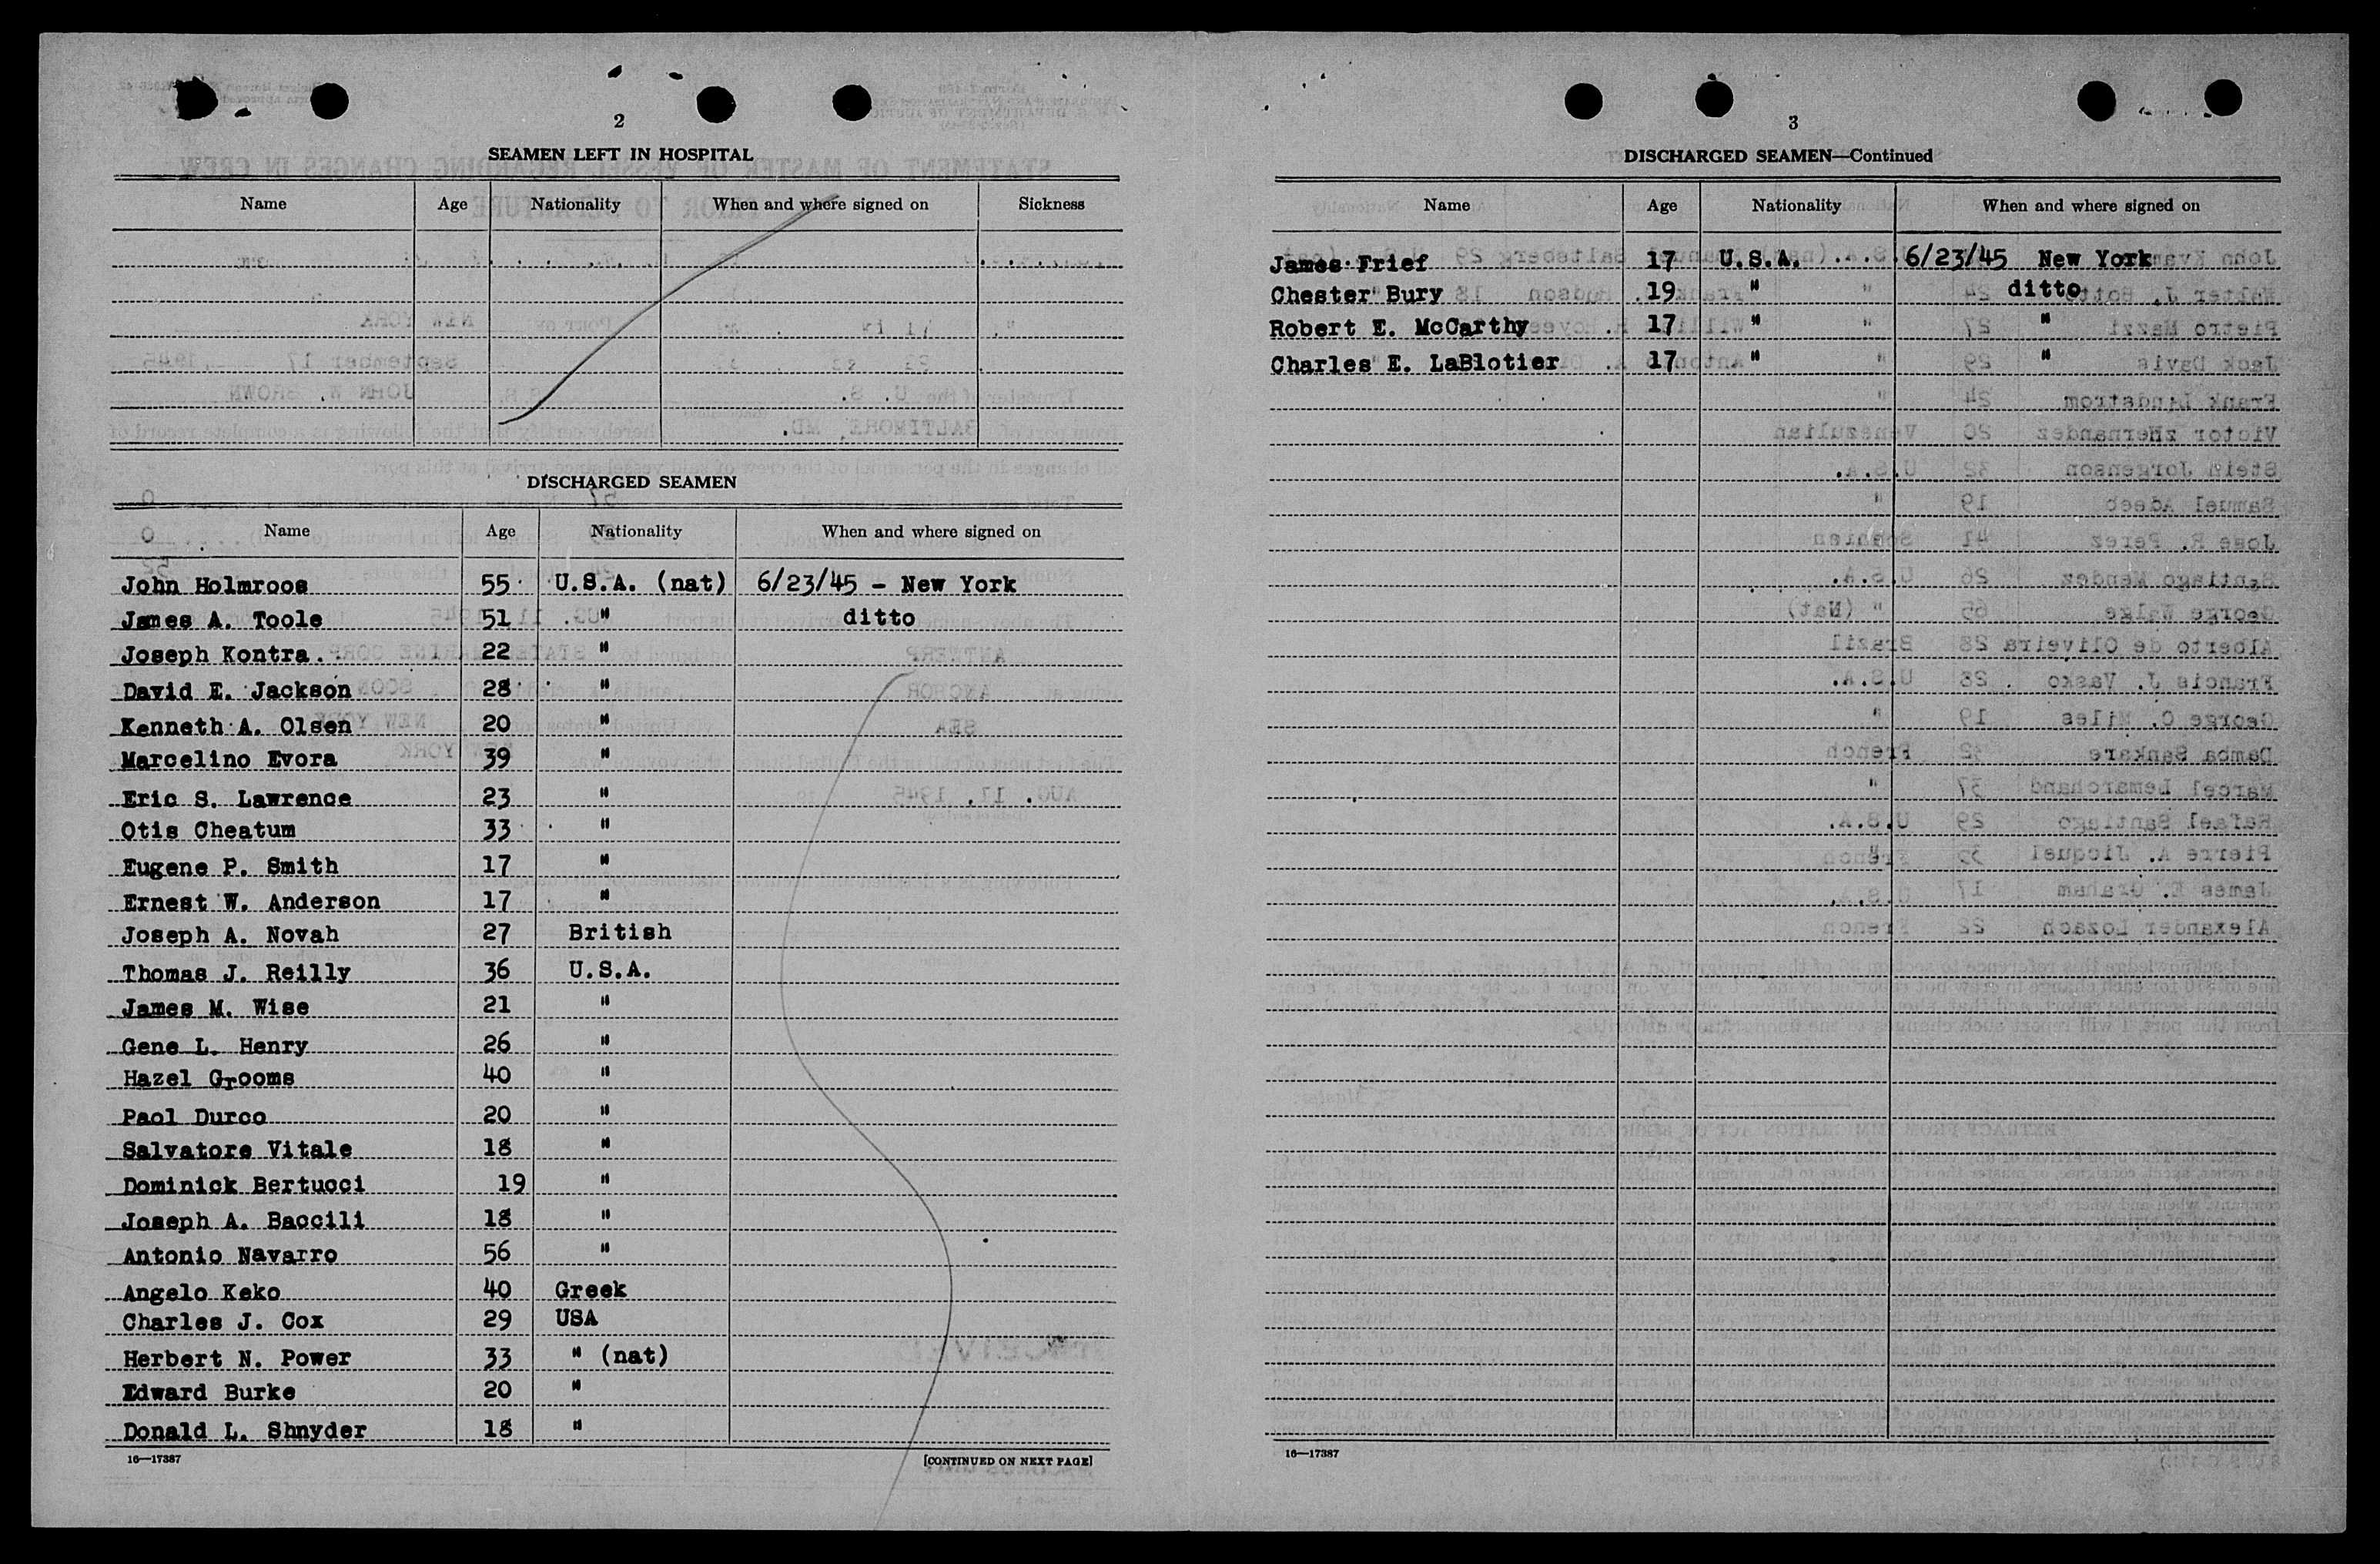 2
SEAMEN LEFT IN HOSPITAL
Name Age Nationality When and where signed on Sickness
DISCHARGED SEAMEN
Name Age Nationality When and where signed on
John Holmroos 55 U.S.A. (nat) 6/23/45 - New York
James A. Toole 51 " ditto
Joseph Kontra. 22 "
David E. Jackson 28 "
Kenneth A. Olsen 20 "
Marcelino Evora 39 "
Eric S. Lawrence 23 "
Otis Cheatum 33 "
Eugene P. Smith 17 "
Ernest W. Anderson 17 "
Joseph A. Novah 27 British
Thomas J. Reilly 36 U.S.A.
James M. Wise 21 "
Gene L. Henry 26 "
Hazel Grooms 40 "
Paol Durco 20 "
Salvatore Vitale 18 "
Dominick Bertucci 19 "
Joseph A. Baccili 18 "
Antonio Navarro 56 "
Angelo Keko 40 Greek
Charles J. Cox 29 USA
Herbert N. Power 33 " (nat)
Edward Burke 20 "
Donald L. Shnyder 18 "
16—17387 [CONTINUED ON NEXT PAGE]
3
DISCHARGED SEAMEN—Continued
Name Age Nationality When and where signed on
James Frief 17 U.S.A. 6/23/45 New York
Chester Bury 19 " ditto
Robert E. McCarthy 17 " "
Charles E. LaBlotier 17 " "
16—17387